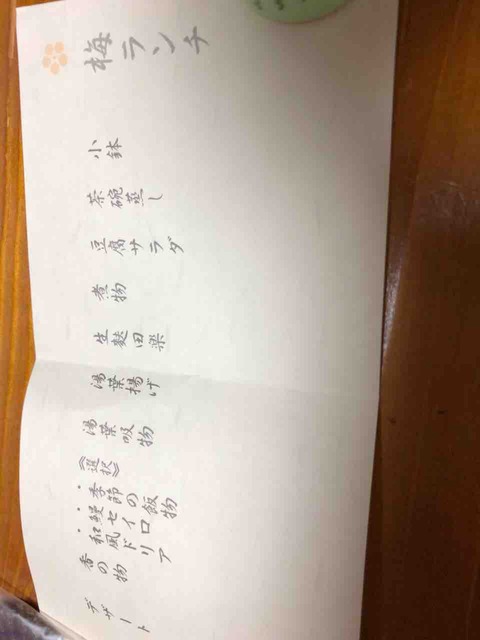 梅ランチ
小鉢
茶碗蒸し
豆腐サラダ
煮物
生麩田楽
湯葉揚げ
湯葉吸物
《選択》
・季節の飯物
・鰻セイロ
・和風ドリア
香の物
デザート